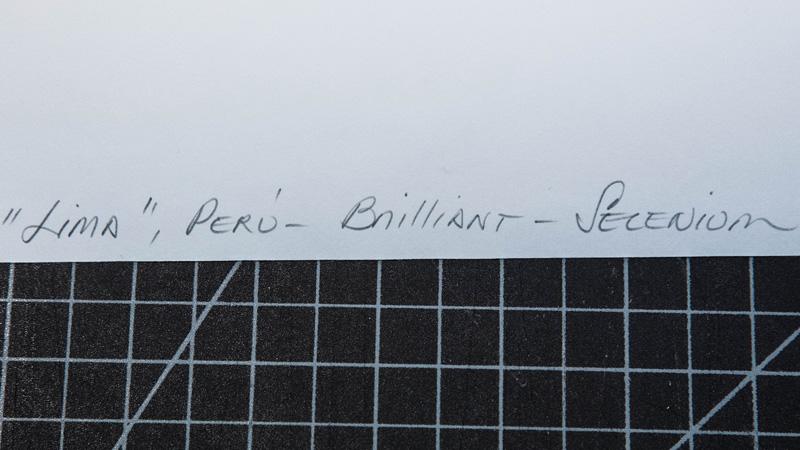 "Lima", Perú - Brilliant - Selenium